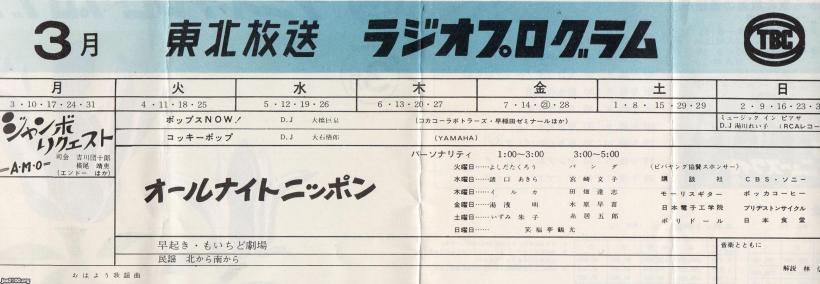 3月 東北放送 ラジオプログラム TBC
月 火 水 木 金 土 日
3・10・17・24・31 4・11・18・25 5・12・19・26 6・13・20・27 7・14・21・28 1・8・15・29・29 2・9・16・23・3
ジャンボリクエスト
—AMO—
司会 吉川団十郎
(エンドー ほか)
ポップスNOW! D.J 大橋巨泉 (コカコーラボトラーズ・早稲田ゼミナールほか)
ミュージック イン ピアザ
D.J 湯川れい子 (RCAレコー
コッキーポップ D.J 大石悟郎 (YAMAHA)
オールナイトニッポン
パーソナリティ 1:00~3:00 3:00~5:00
火曜日……よしだたくろう バンダ (ビバヤング協賛スポンサー)
水曜日……諸口あきら 宮崎文子 講談社 CBS・ソニー
木曜日……イルカ 田畑達志 モーリスギター ポッカコーヒー
金曜日……湯浅明 水原早苗 日本電子工学院 ブリヂストンサイクル
土曜日……いずみ朱子 糸居五郎 ポリドール 日本食堂
日曜日…… 笑福亭鶴光
早起き・もいちど劇場
民謡 北から南から
音楽とともに
解説 林
おはよう歌謡曲